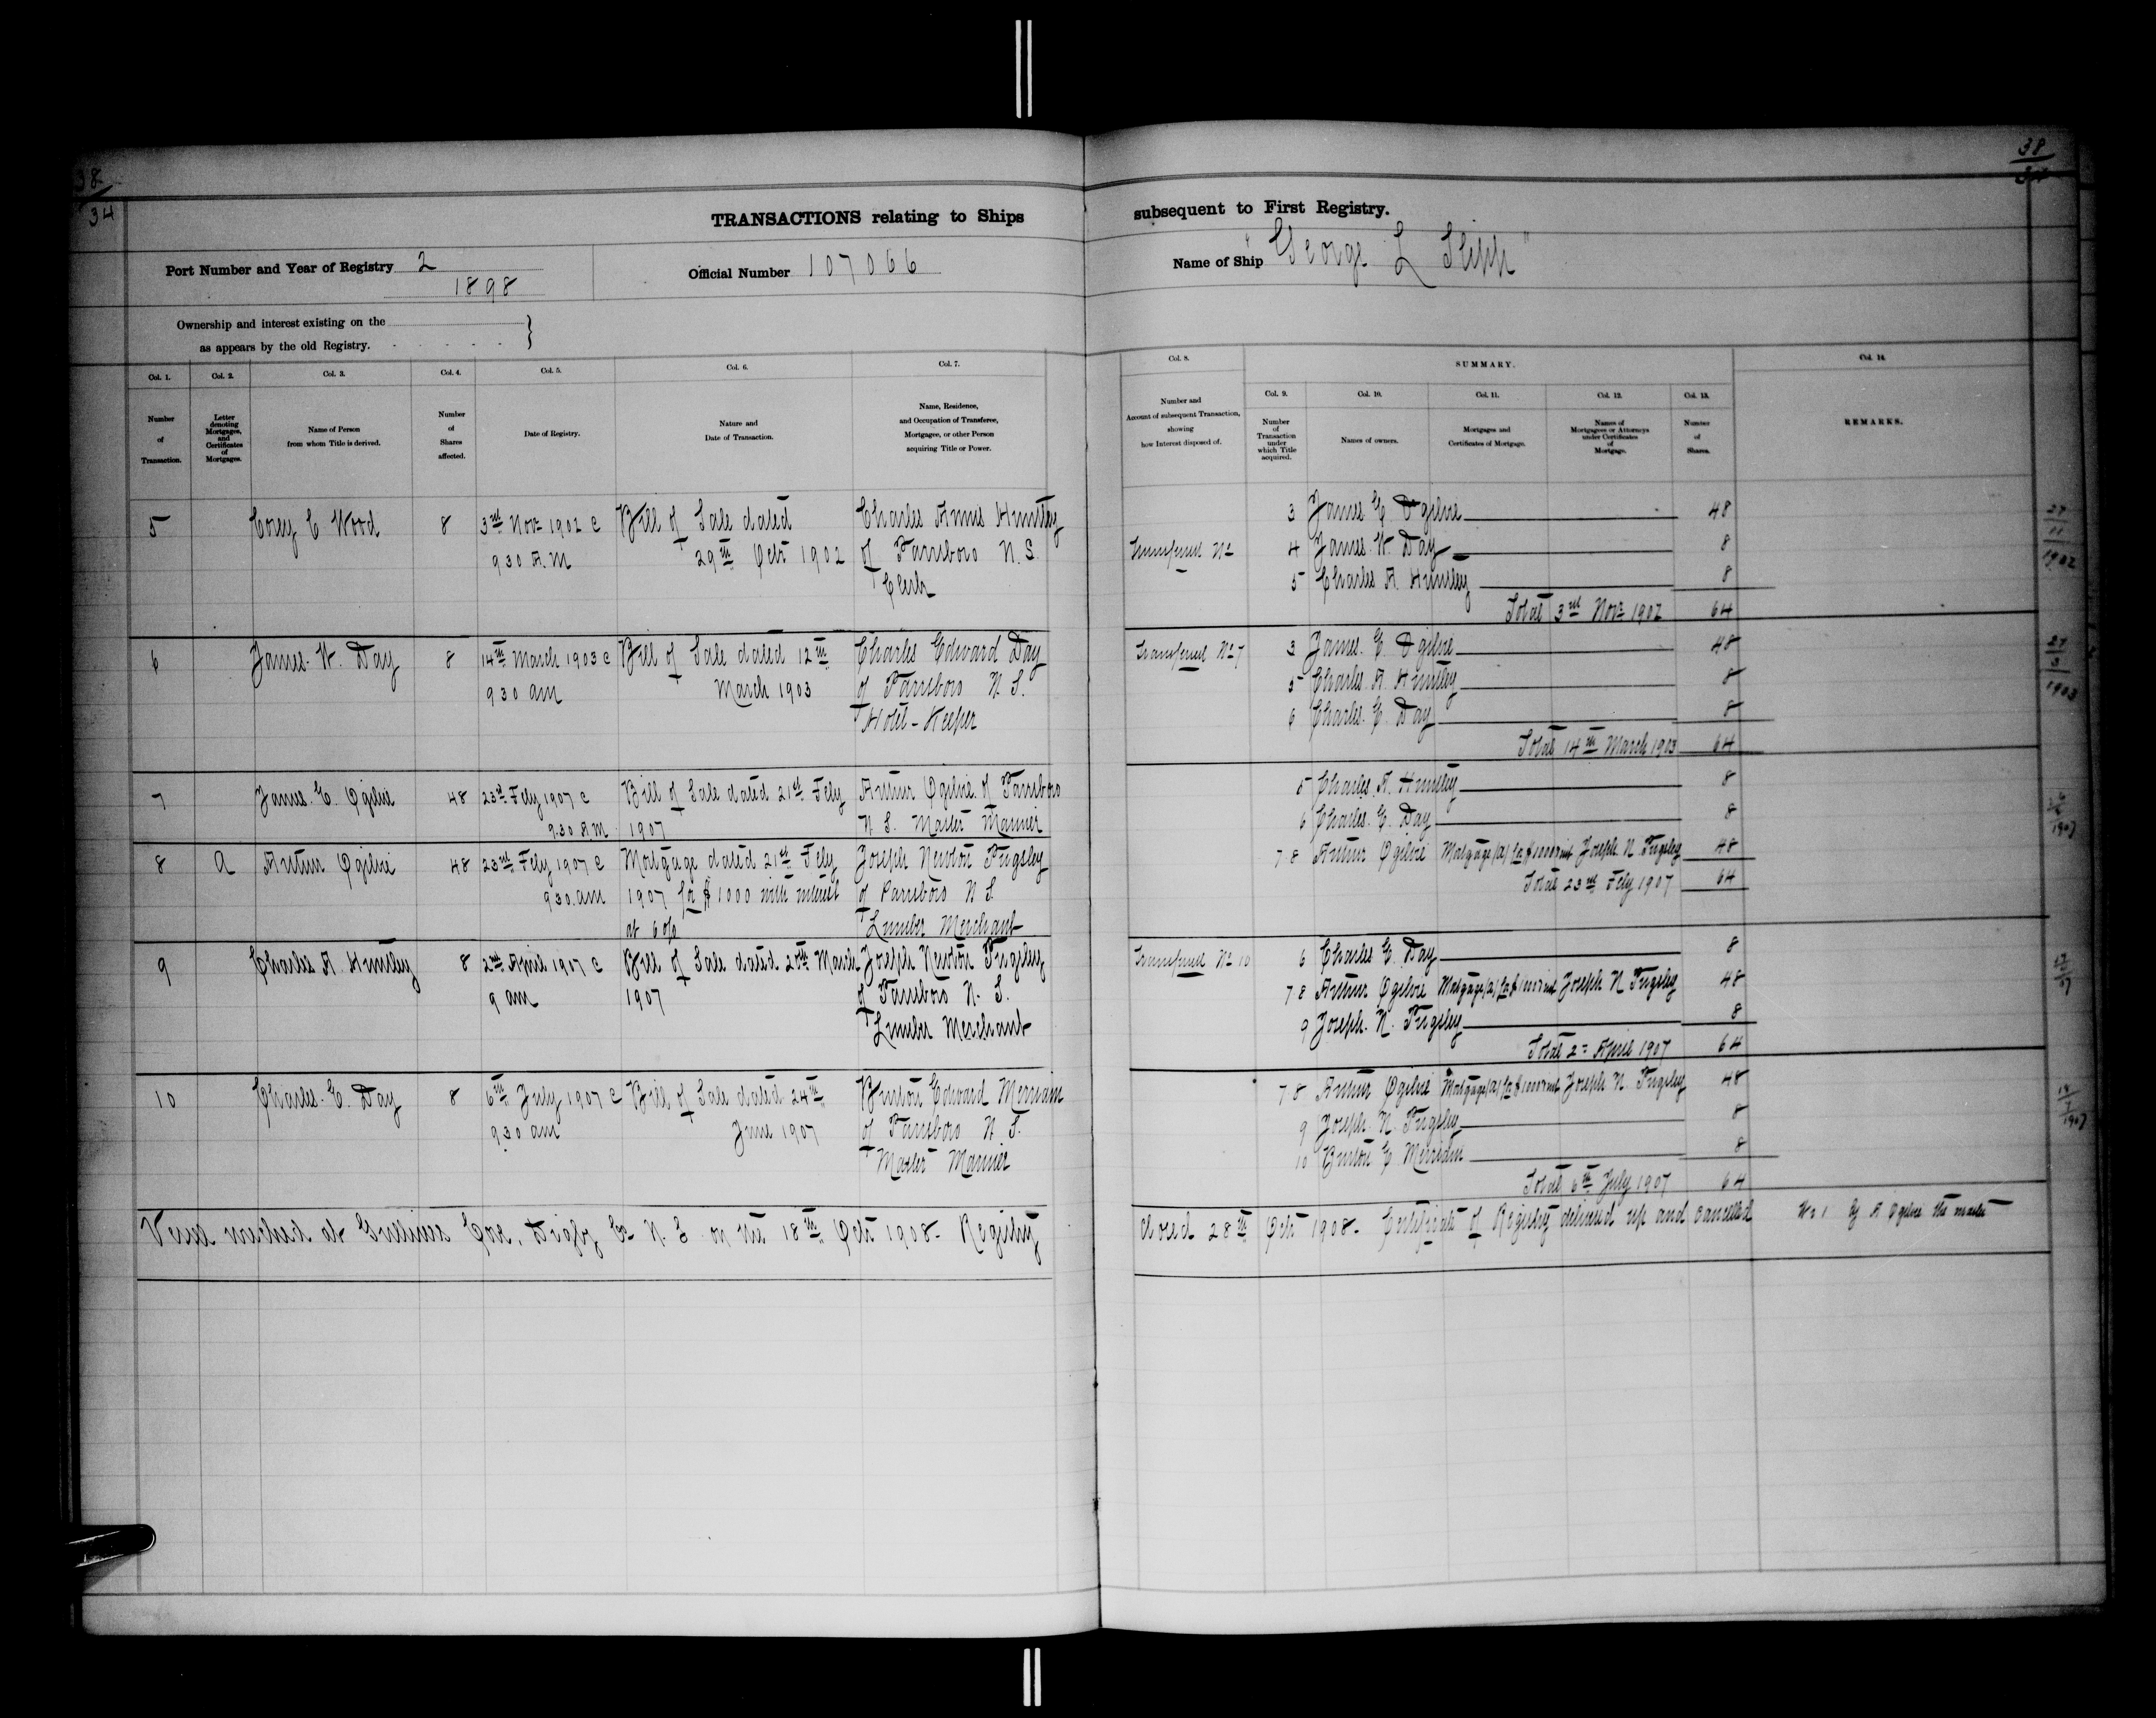 38
34
38
34
TRANSACTIONS relating to Ships subsequent to First Registry.
Port Number and Year of Registry 2
1898
Official Number 107066
Name of Ship "George L Slipp"
Ownership and interest existing on the
as appears by the old Registry.
Col. 1.
Number
of
Transaction.
Col. 2.
Letter
denoting
Mortgages,
and
Certificates
of
Mortgages.
Col. 3.
Name of Person
from whom Title is derived.
Col. 4.
Number
of
Shares
affected.
Col. 5.
Date of Registry.
Col. 6.
Nature and
Date of Transaction.
Col. 7.
Name, Residence,
and Occupation of Transferee,
Mortgagee, or other Person
acquiring Title or Power.
Col. 8.
Number and
Account of subsequent Transaction,
showing
how Interest disposed of.
SUMMARY.
Col. 9.
Number
of
Transaction
under
which Title
acquired.
Col. 10.
Names of owners.
Col. 11.
Mortgages and
Certificates of Mortgage.
Col. 12.
Names of
Mortgagees or Attorneys
under Certificates
of
Mortgage.
Col. 13.
Number
of
Shares.
Col. 14.
REMARKS.
5 Corey C Wood 8 3rd Novr 1902 @ Bill of Sale dated Charles Huntley
9 30 A.M 29th Octr 1902 of Parrsboro N.S.
Clerk
3 James E. Ogilvie 48
Transferred No 4 James. W. Day 8
5 Charles A. Huntley 8
Total 3rd Novr 1902 64
27
11
1902
6 James. W. Day 8 14th March 1903 @ Bill of Sale dated 12th Charles Edward Day
9 30 am March 1903 of Parrsboro N.S.
Hotel-Keeper
Transferred No 7 3 James. E. Ogilvie 48
5 Charles. A. Huntley 8
6 Charles. E. Day 8
Total 14th March 1903 64
1903
7 James. E. Ogilvie 48 23rd Feby 1907 @ Bill of Sale dated 21st Feby Arthur Ogilvie of Parrsboro
9.30 A.M 1907 N.S. Master Mariner
5 Charles. A. Huntley 8
6 Charles. E. Day 8
8 A Arthur Ogilvie 48 23rd Feby 1907 @ Mortgage dated 21st Feby Joseph Newton Pugsley
9 30 am 1907 for $1000 with interest of Parrsboro N.S.
at 6% Lumber Merchant
7 8 Arthur Ogilvie Mortgage (A) for $1000 & int Joseph. N. Pugsley 48
Total 23rd Feby 1907 64
1907
9 Charles A. Huntley 8 2nd April 1907 @ Bill of Sale dated 20th March Joseph Newton Pugsley
9 am 1907 of Parrsboro N.S.
Lumber Merchant
Transferred No 10 6 Charles E. Day 8
7 8 Arthur Ogilvie Mortgage (A) for $1000 & int Joseph N Pugsley 48
9 Joseph. N. Pugsley 8
Total 2nd April 1907 64
10 Charles. E. Day 8 6th July 1907 @ Bill of Sale dated 24th Burton Edward Merriam
9 30 am June 1907 of Parrsboro N.S.
Master Mariner
7 8 Arthur Ogilvie Mortgage (A) for $1000 & int Joseph N. Pugsley 48
9 Joseph. N. Pugsley 8
10 Burton E Merriam 8
Total 6th July 1907 64
1907
Vessel wrecked at Gullivers Cove, Digby Co N.S. on the 18th Octr 1908- Registry
closed 28th Octr 1908- Certificate of Registry delivered up and cancelled by A Ogilvie the master